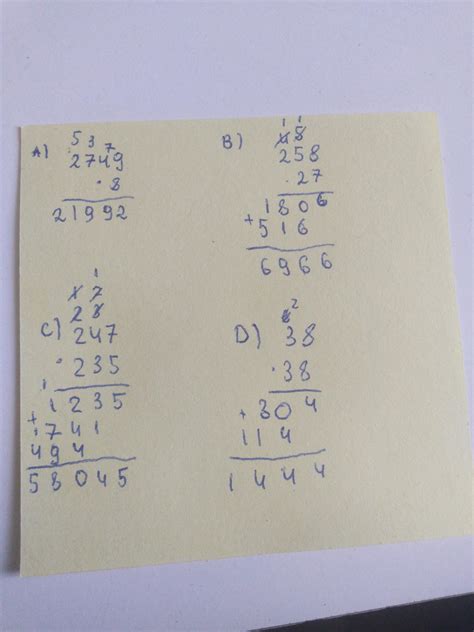 A)
5 3 7
2749
· 8
21992
B)
1 1
258
· 27
1806
+ 516
6966
C)
1
2
247
· 235
1
1235
+ 741
494
58045
D)
2
38
· 38
+ 304
114
1444